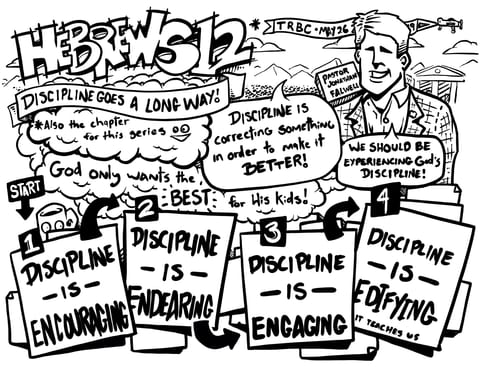 HEBREWS 12
* TRBC • MAY 26
19
PASTOR
JONATHAN
FALWELL
DISCIPLINE GOES A LONG WAY!
*Also the chapter
for this series
DISCIPLINE IS
correcting something
in order to make it
BETTER!
WE SHOULD BE
EXPERIENCING God's
DISCIPLINE!
God only wants the
BEST for His kids!
START
1
DISCIPLINE
- IS -
ENCOURAGING
2
DISCIPLINE
- IS -
ENDEARING
3
DISCIPLINE
- IS -
ENGAGING
4
DISCIPLINE
- IS -
EDIFYING
IT TEACHES US